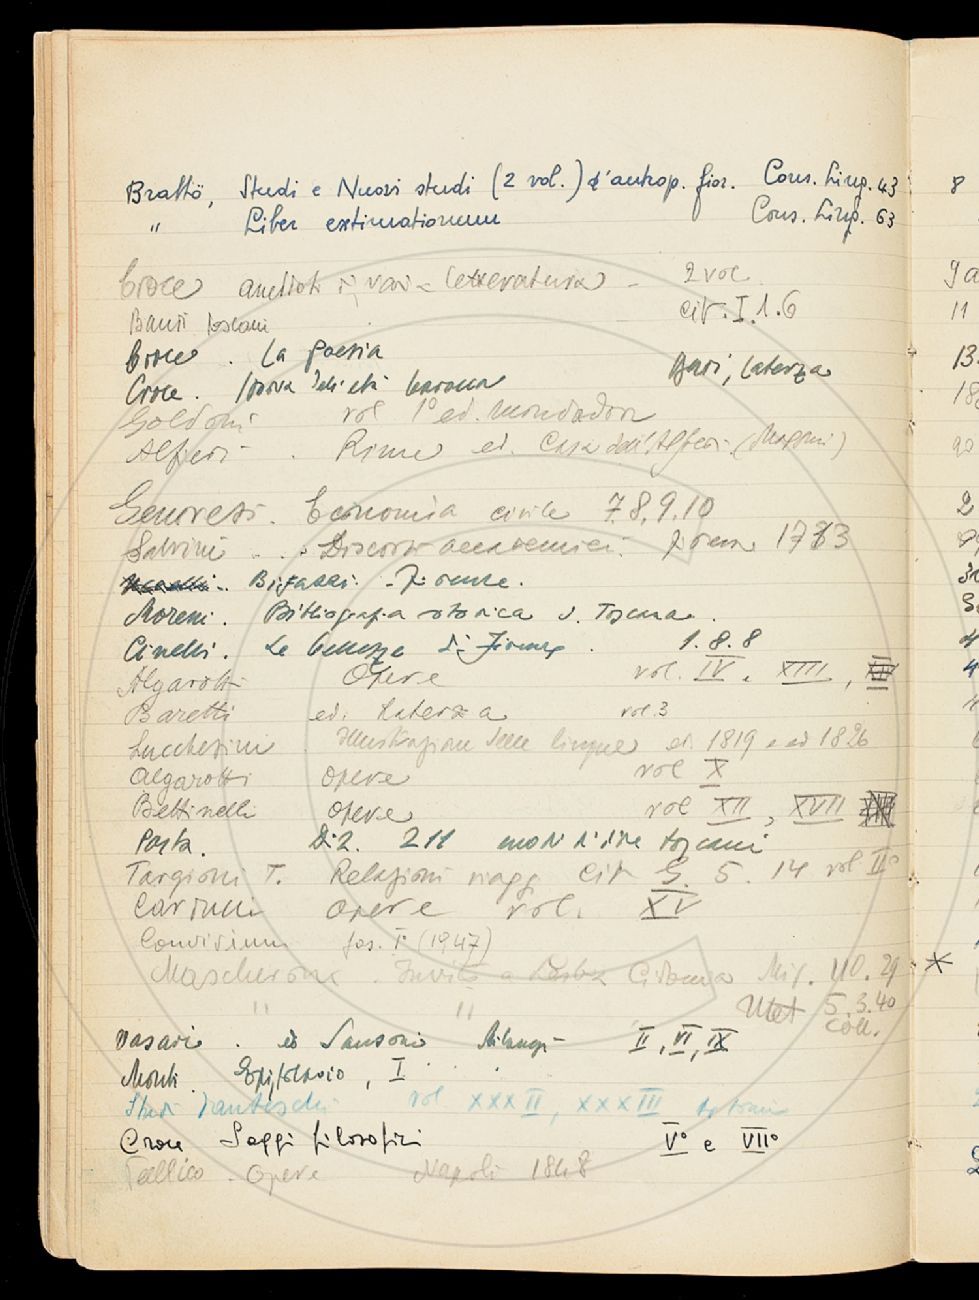 Brattö, Studi e Nuovi studi (2 vol.) d'antrop. fior. Cons. Ling. 43 8
" Liber extimationum Cons. Ling. 63
Croce aneddoti di varia letteratura - 2 vol
Bandi toscani cit. I. 1. 6 11
Croce . La poesia 13
Croce . Storia dell'età barocca Bari, Laterza
Goldoni vol 1° ed. Mondadori
Alfieri . Rime ed. Casa dell'Alfieri (Maggini)
Genovesi. Economia civile 7.8.9.10 2
Salvini . . Discorsi accademici. Firenze 1733
Bigazzi - Firenze.
Moreni. Bibliografia storica d. Toscana.
Cinelli. Le bellezze di Firenze . 1.8.8
Algarotti Opere vol. IV . XIII,
Baretti ed. Laterza vol. 3
Lucchesini Illustrazione delle lingue ed. 1819 e ed 1826
Algarotti opere vol X
Bettinelli opere vol XII, XVII
Pasta. Diz. 211 modi di dire toscani
Targioni T. Relazioni viagg. Cit G. 5. 14 vol II°
Carducci opere vol. XV
Convivium fas. I° (1947)
Mascheroni . Invito a Lesbia Cidonia Mis. 110. 29 *
" " 5.3.40
Coll.
Vasari . ed Sansoni Milanesi II, VI, IX
Monti Epistolario, I
Studi Danteschi vol XXXII, XXXIII
Croce Saggi filosofici V° e VII°
Opere Napoli 1848